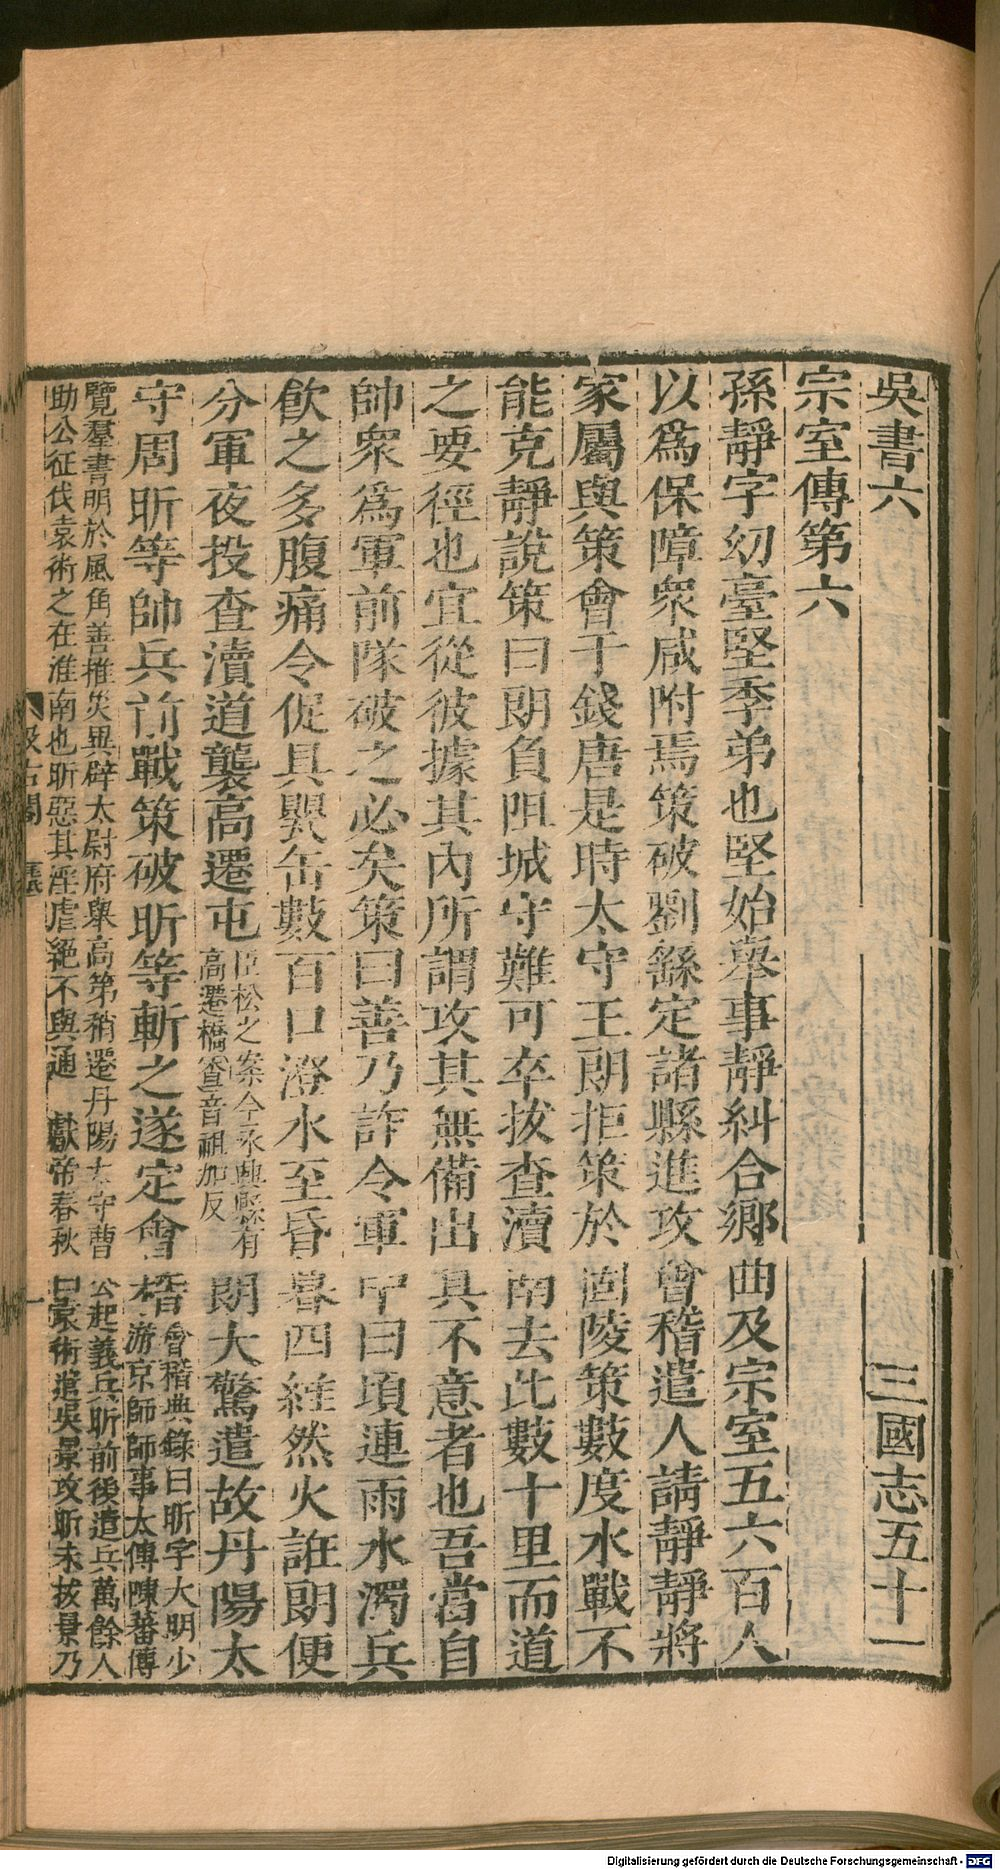 吳書六 三國志五十一
宗室傳第六
孫靜字幼臺堅季弟也堅始舉事靜糾合鄉曲及宗室五六百人
以爲保障衆咸附焉策破劉繇定諸縣進攻會稽遣人請靜靜將
家屬與策會于錢唐是時太守王朗拒策於固陵策數度水戰不
能克靜說策曰朗負阻城守難可卒拔查瀆南去此數十里而道
之要徑也宜從彼據其內所謂攻其無備出其不意者也吾當自
帥衆爲軍前隊破之必矣策曰善乃詐令軍中曰頃連雨水濁兵
飮之多腹痛令促具甖缶數百口澄水至昏暮四維然火誑朗便
分軍夜投查瀆道襲高遷屯
臣松之案今永興縣有
高遷橋查音祖加反
朗大驚遣故丹陽太
守周昕等帥兵前戰策破昕等斬之遂定會稽
會稽典錄曰昕字大明少
游京師師事太傅陳蕃博
覽羣書明於風角善推災異辟太尉府舉高第稍遷丹陽太守曹公起義兵昕前後遣兵萬餘人
助公征伐袁術之在淮南也昕惡其淫虐絕不與通 獻帝春秋曰袁術遣吳景攻昕未拔景乃
汲古閣
一
Digitalisierung gefördert durch die Deutsche Forschungsgemeinschaft - DFG